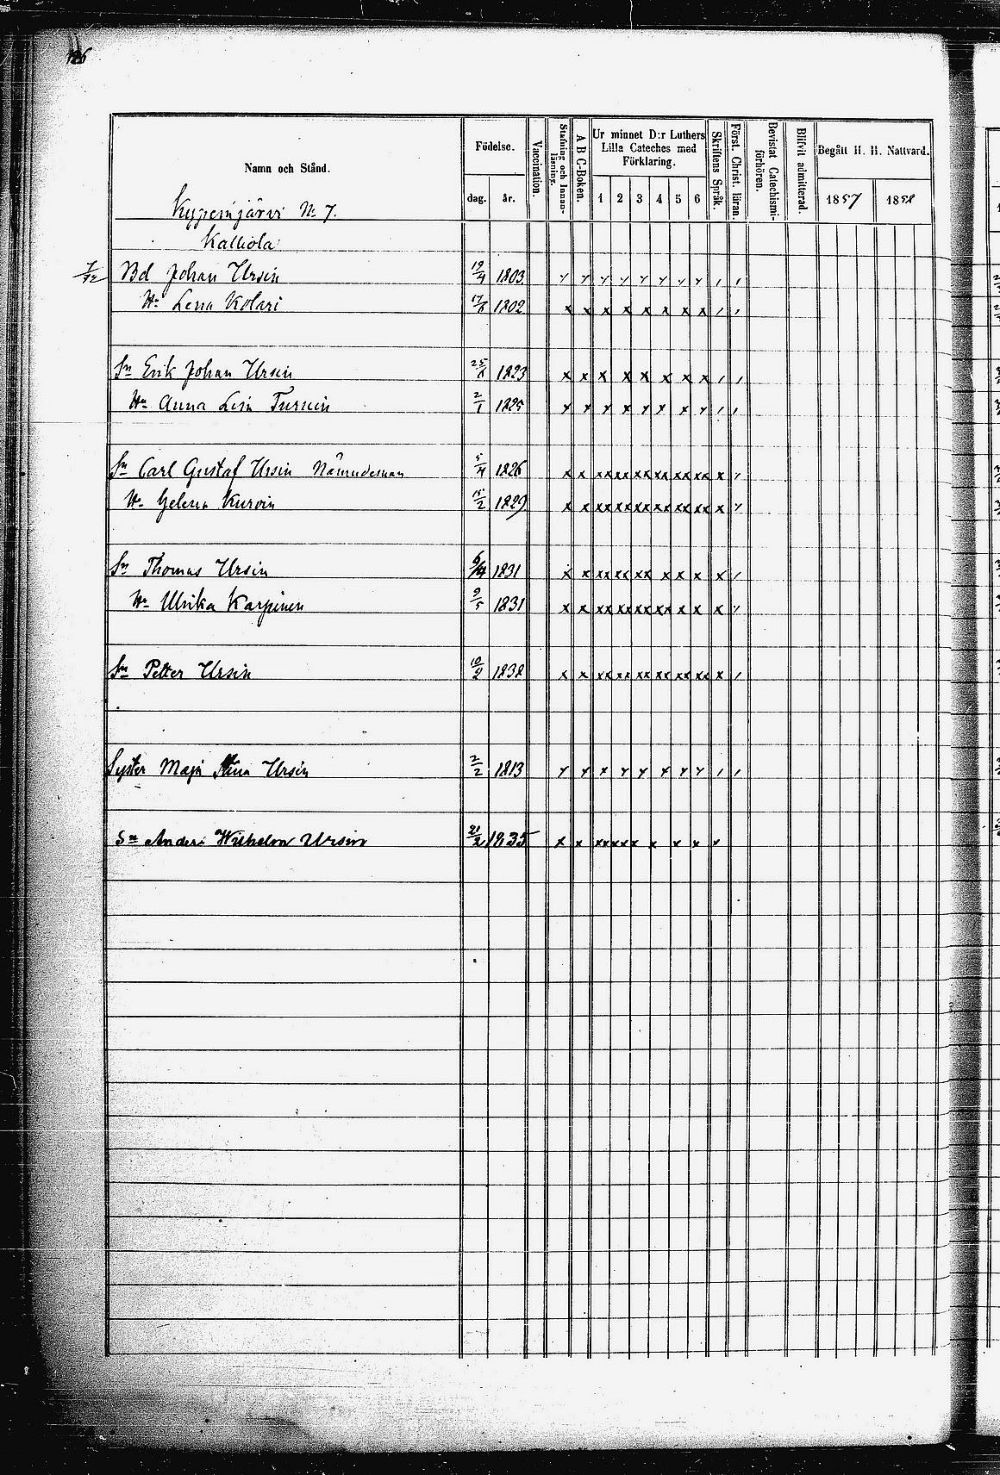 Namn och Stånd.
Födelse.
dag. år.
Vaccination.
Stafning och Innanläsning.
A B C-Boken.
Ur minnet D:r Luthers Lilla Cateches med Förklaring.
1 2 3 4 5 6
Skriftens Språk.
Först. Christ. läran.
Bevistat Catechismiförhören.
Blifvit admitterad.
Begått H. H. Nattvard.
1857 1858
No 7.
Kalliola
Bd Johan Ursin 19/4 1803
Hu Lena Kolari 1802
Sn Erik Johan Ursin 1823
Hu Anna Lisa Turuin 2/1 1825
Sn Carl Gustaf Ursin Nämndeman 5/4 1826
Hu Helena Kurvin 1829
Sn Thomas Ursin 6/4 1831
Hu Ulrika Karpinen 9/5 1831
Sn Petter Ursin 1838
Syster Maja Stina Ursin 2/2 1813
Sn Anders Wilhelm Ursin 21/2 1835